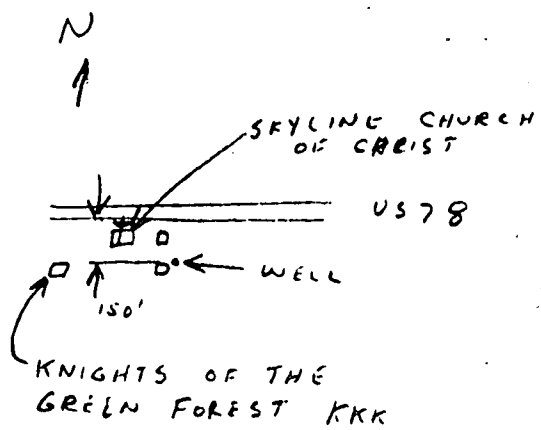 N
SKYLINE CHURCH
OF CHRIST
US 78
WELL
150'
KNIGHTS OF THE
GREEN FOREST KKK